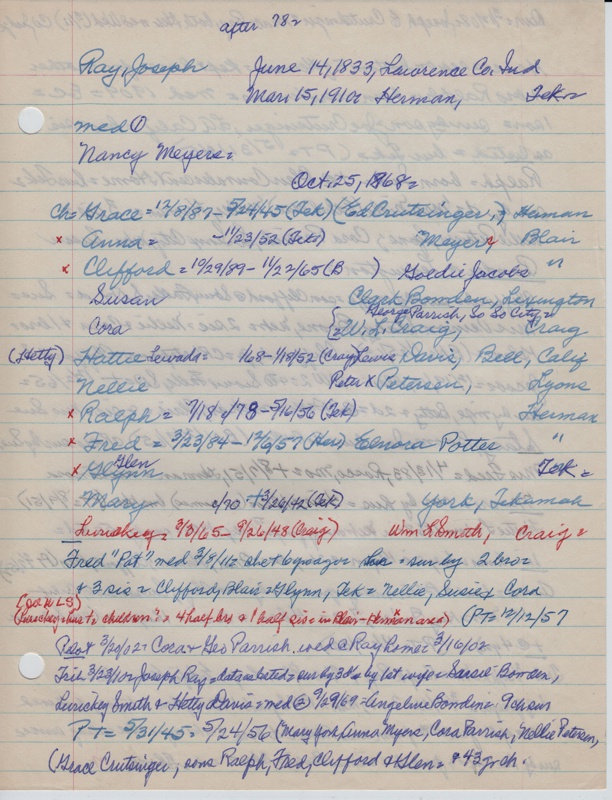 after 782
Ray, Joseph June 14, 1833, Lawrence Co. Ind
Mar 15, 1910 Herman, Tek
med ①
Nancy Meyers=
Oct. 25, 1868=
ch= Grace= 12/8/87- 5/24/45 (Tek) (Ed Crutsinger, ?) Herman
x Anna= -11/23/52 (Tek) Meyers Blair
x Clifford= 10/29/89- 11/22/65 (B ) Goldie Jacobs "
Susan Clark Bowden, Lexington
George Parrish, So So City=
Cora W. L. Craig, Craig
(Hetty) Hattie Levada= 1/68-1/18/52 (Craig) Lewis Davis, Bell, Calif
Nellie Peter X Petersen, Lyons
x Ralph= 7/18 78-5/16/56 (Tek) Herman
x Fred= 3/23/84- 12/6/57 (Her) Elenora Potter "
Glen
x Glynn Tek=
Mary c/70 +3/26/42 (Tek) York, Tekamah
Lurickey= 3/3/65- 9/26/48 (Craig) Wm L Smith, Craig=
Fred "Pat" med 3/8/11= = sur by 2 bro=
& 3 sis= Clifford, Blair= Glynn, Tek= Nellie, Susie & Cora
(Lurickey= children? x 4 half bro & 1 half sis= in Blair-Herman area) (PT= 12/12/57
Pilot 3/20/02= Cora & Geo Parrish, wed @ Ray home= 3/16/02
Trib 3/23/10= Joseph Ray= data as listed= sur by 3ds by 1st wife= Sarsie Bowden,
Lurickey Smith & Hetty Davis= med ② 9/29/69= Angeline Bowdin= 9ch sur
PT= 5/31/45= 5/24/56 (Mary York, Anna Myers, Cora Parrish, Nellie Petersen,
(Grace Crutsinger, sons Ralph, Fred, Clifford & Glen= & 43 grch.